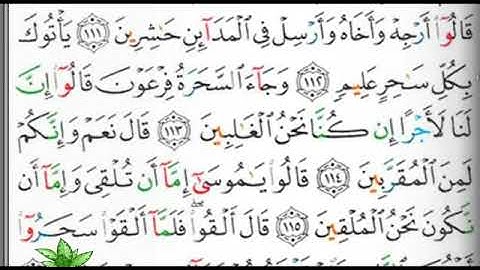 قَالُوٓا۟ أَرْجِهْ وَأَخَاهُ وَأَرْسِلْ فِى ٱلْمَدَآئِنِ حَٰشِرِينَ ١١١ يَأْتُوكَ
بِكُلِّ سَٰحِرٍ عَلِيمٍ ١١٢ وَجَآءَ ٱلسَّحَرَةُ فِرْعَوْنَ قَالُوٓا۟ إِنَّ
لَنَا لَأَجْرًا إِن كُنَّا نَحْنُ ٱلْغَٰلِبِينَ ١١٣ قَالَ نَعَمْ وَإِنَّكُمْ
لَمِنَ ٱلْمُقَرَّبِينَ ١١٤ قَالُوا۟ يَٰمُوسَىٰٓ إِمَّآ أَن تُلْقِىَ وَإِمَّآ أَن
نَّكُونَ نَحْنُ ٱلْمُلْقِينَ ١١٥ قَالَ أَلْقُوا۟ ۖ فَلَمَّآ أَلْقَوْا۟ سَحَرُوٓا۟